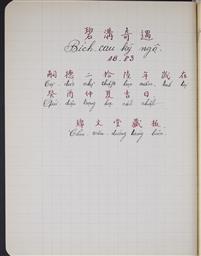 碧溝奇遇
Bích-câu kỳ ngộ.
18.83
嗣德二拾陵年歲在
Tự-đức nhị thập lục niên,
癸酉仲夏吉日
錦文堂藏板
Cẩm-văn-đường tàng bản.